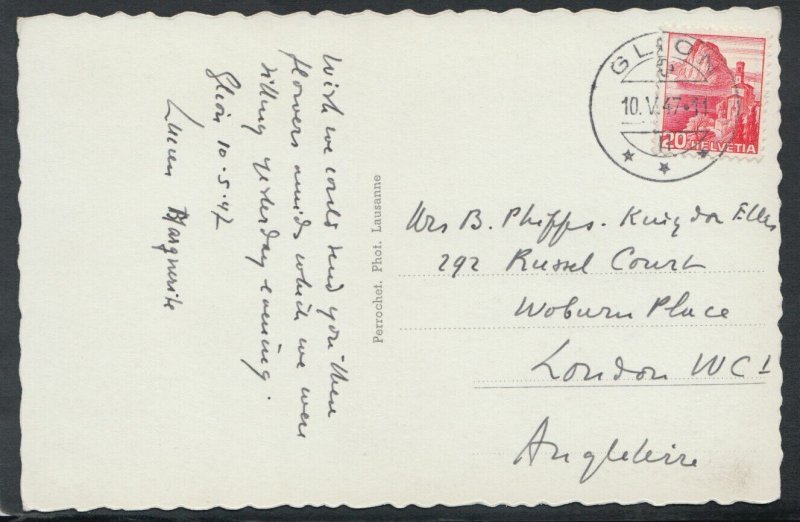 Wish we could send you these
flowers amids which we were
sitting yesterday evening.
Glion 10-5-47
Lucien Marguerite
Perrochet. Phot. Lausanne
GLION
10.V.47-11
20 HELVETIA
Mrs B. Phipps.
292 Russel Court
Woburn Place
London WC1
Angleterre